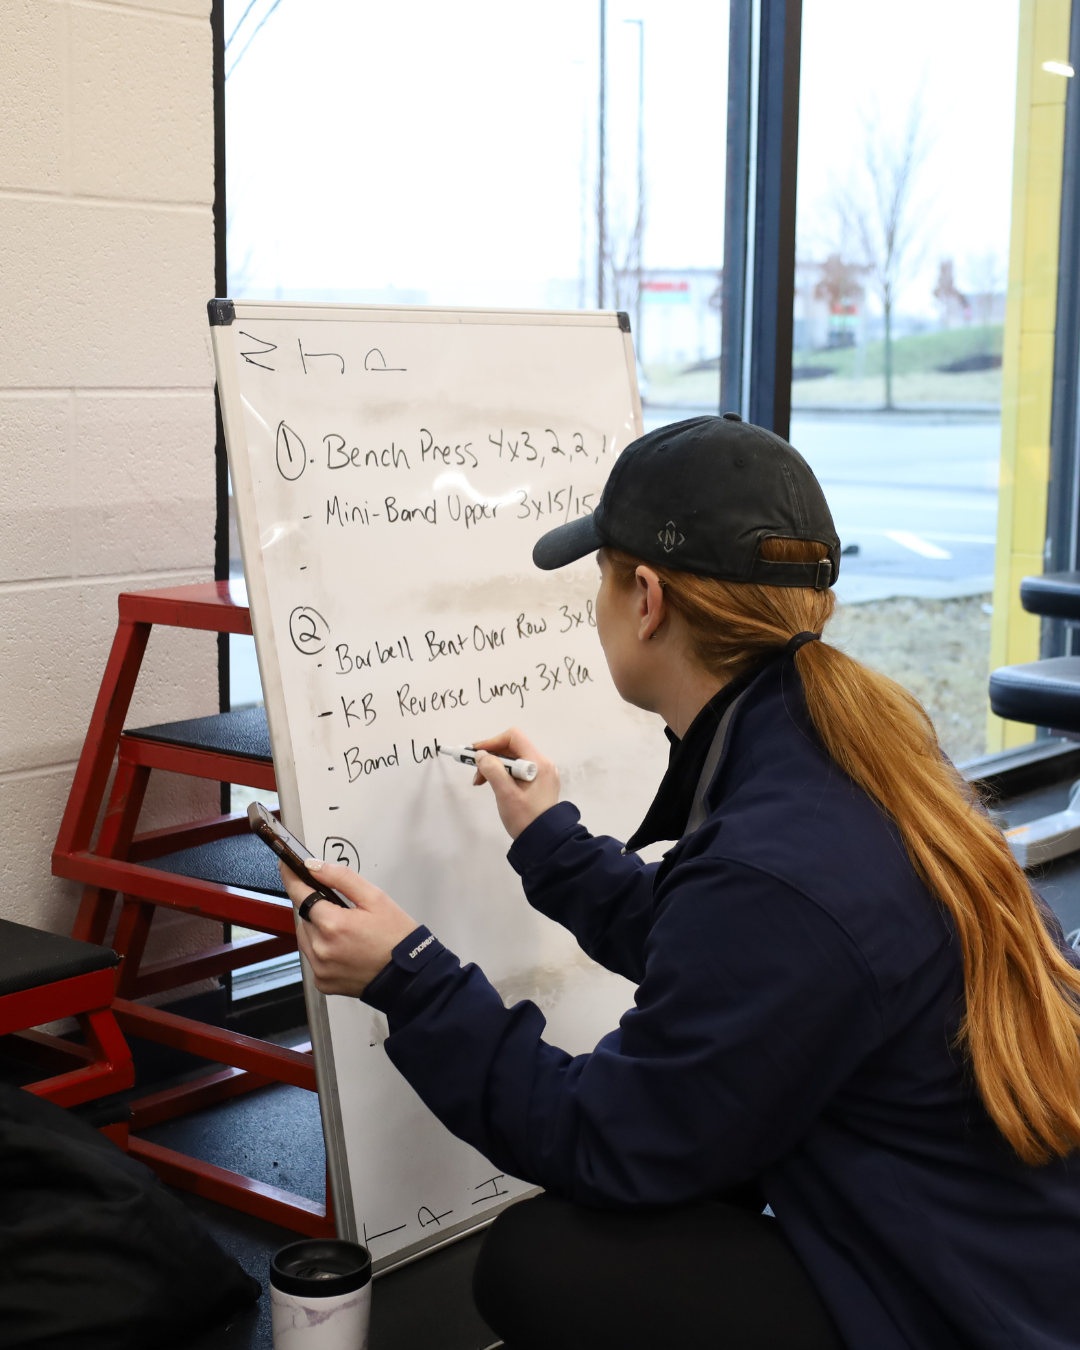 1. Bench Press 4x3,2,2,1
- Mini-Band Upper 3x15/15
-
2
- Barbell Bent Over Row 3x8
- KB Reverse Lunge 3x8ea
- Band Lat
-
3
N